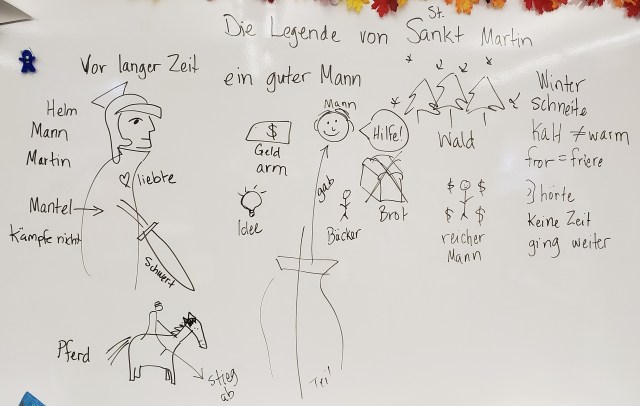 Die Legende von Sankt Martin
St.
Vor langer Zeit
ein guter Mann
Helm
Mann
Martin
liebte
Mantel
Kämpfe nicht
Schwert
Pferd
stieg
ab
$
Geld
arm
Idee
Mann
Hilfe!
gab
Bäcker
Brot
Wald
$ $
$ $
reicher
Mann
Winter
schneite
Kalt ≠ warm
fror = friere
hörte
Keine Zeit
ging weiter